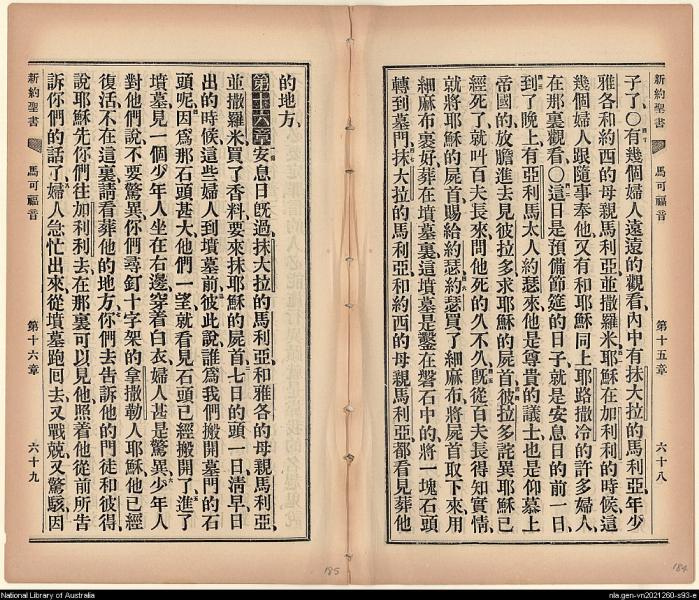 新約聖書 馬可福音 第十五章 六十八
子了○有幾個婦人遠遠的觀看內中有抹大拉的馬利亞年少
雅各和約西的母親馬利亞並撒羅米耶穌在加利利的時候這
幾個婦人跟隨事奉他又有和耶穌同上耶路撒冷的許多婦人
在那裏觀看○這日是預備節筵的日子就是安息日的前一日
到了晚上有亞利馬太人約瑟來他是尊貴的議士也是仰慕上
帝國的放膽進去見彼拉多求耶穌的屍首彼拉多詫異耶穌已
經死了就呌百夫長來問他死的久不久旣從百夫長得知實情
就將耶穌的屍首賜給約瑟約瑟買了細麻布將屍首取下來用
細麻布裹好葬在墳墓裏這墳墓是鑿在磐石中的將一塊石頭
轉到墓門抹大拉的馬利亞和約西的母親馬利亞都看見葬他
的地方、
第十六章 安息日旣過抹大拉的馬利亞和雅各的母親馬利亞、
並撒羅米買了香料要來抹耶穌的屍首七日的頭一日淸早日
出的時候這些婦人到墳墓前彼此說誰爲我們搬開墓門的石
頭呢因爲那石頭甚大他們一望就看見石頭已經搬開了進了
墳墓見一個少年人坐在右邊穿着白衣婦人甚是驚異少年人
對他們說不要驚異你們尋釘十字架的拿撒勒人耶穌他已經
復活不在這裏請看葬他的地方你們去告訴他的門徒和彼得
說耶穌先你們往加利利去在那裏可以見他照着他從前所告
訴你們的話了婦人急忙出來從墳墓跑回去又戰兢又驚駭因
新約聖書 馬可福音 第十六章 六十九
185
184
National Library of Australia
nla.gen-vn2021260-s93-e